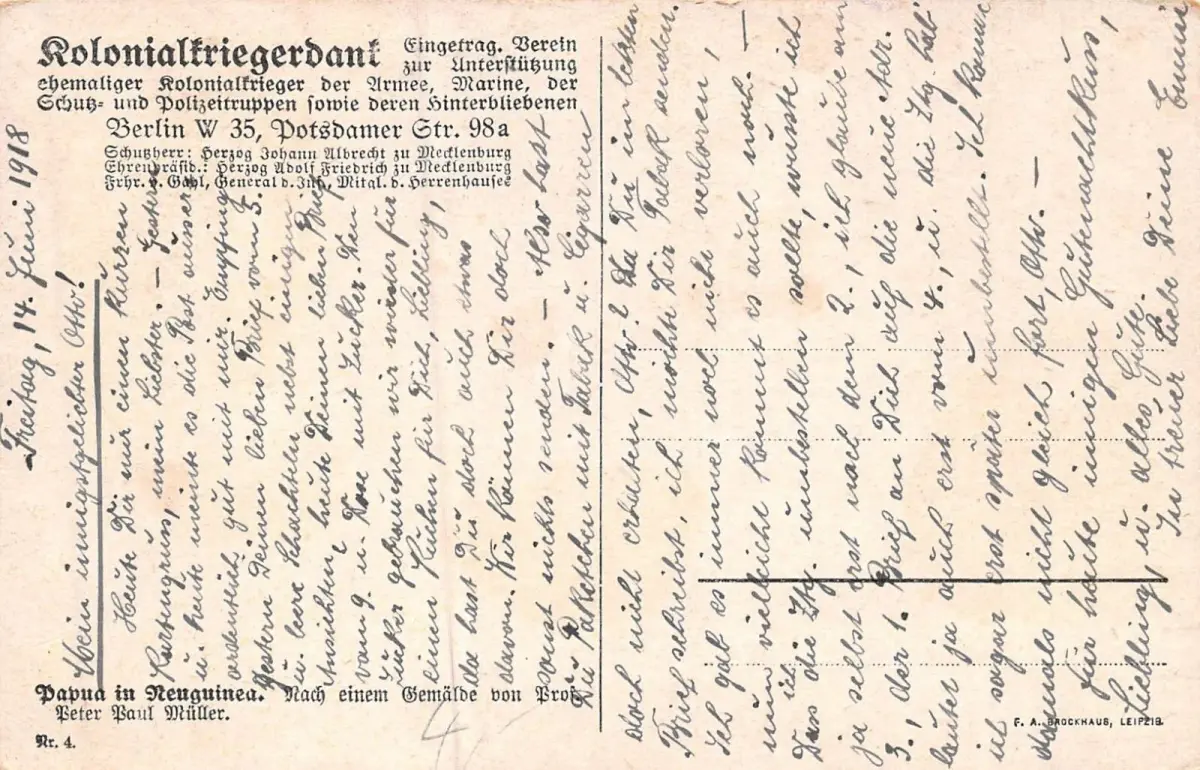 Kolonialkriegerdank Eingetrag. Verein
zur Unterstützung
ehemaliger Kolonialkrieger der Armee, Marine, der
Schutz- und Polizeitruppen sowie deren Hinterbliebenen
Berlin W 35, Potsdamer Str. 98a
Schutzherr: Herzog Johann Albrecht zu Mecklenburg
Ehrenpräsid.: Herzog Adolf Friedrich zu Mecklenburg
Frhr. v. Gayl, General d. Inf., Mitgl. d. Herrenhauses
Freitag, 14. Juni 1918
Mein innigstgeliebter Otto!
Heute Dir nur einen kurzen
Kartengruss, mein Liebster. — Gestern
u. heute meinte es die Post ausser-
ordentlich gut mit mir. Empfing
gestern Deinen lieben Brief vom 5.
u. leere Schachteln nebst einigen
Ansichten u. heute Deinen lieben Brief
vom 9. u. Dose mit Zucker. Den
Zucker gebrauchen wir wieder für
einen Kuchen für Dich, Liebling,
da hast Du doch auch etwas
davon. Wir können Dir doch
sonst nichts senden. — Also hast
Du Paketchen mit Tabak u. Cigarren
doch nicht erhalten, Otto? Da Du im letzten
Brief schreibst, ich möchte Dir Tabak senden.
Ich gab es immer noch nicht verloren,
nun vielleicht kommt es auch noch. —
Dass ich die Ztg. umbestellen sollte, wusste ich
ja selbst erst nach dem 2., ich glaube am
3., der 1. Brief an Dich auf die neue Adr.
lautet ja auch erst vom 4., u. die Ztg. hab'
ich sogar erst später umbestellt. Ich kann
damals nicht gleich fort, Otto. —
Für heute innigen Gutenachtkuss,
Liebling, u. alles Gute.
In treuer Liebe Deine Emmi
Papua in Neuguinea. Nach einem Gemälde von Prof.
Peter Paul Müller.
Nr. 4.
4
F. A. BROCKHAUS, LEIPZIG.